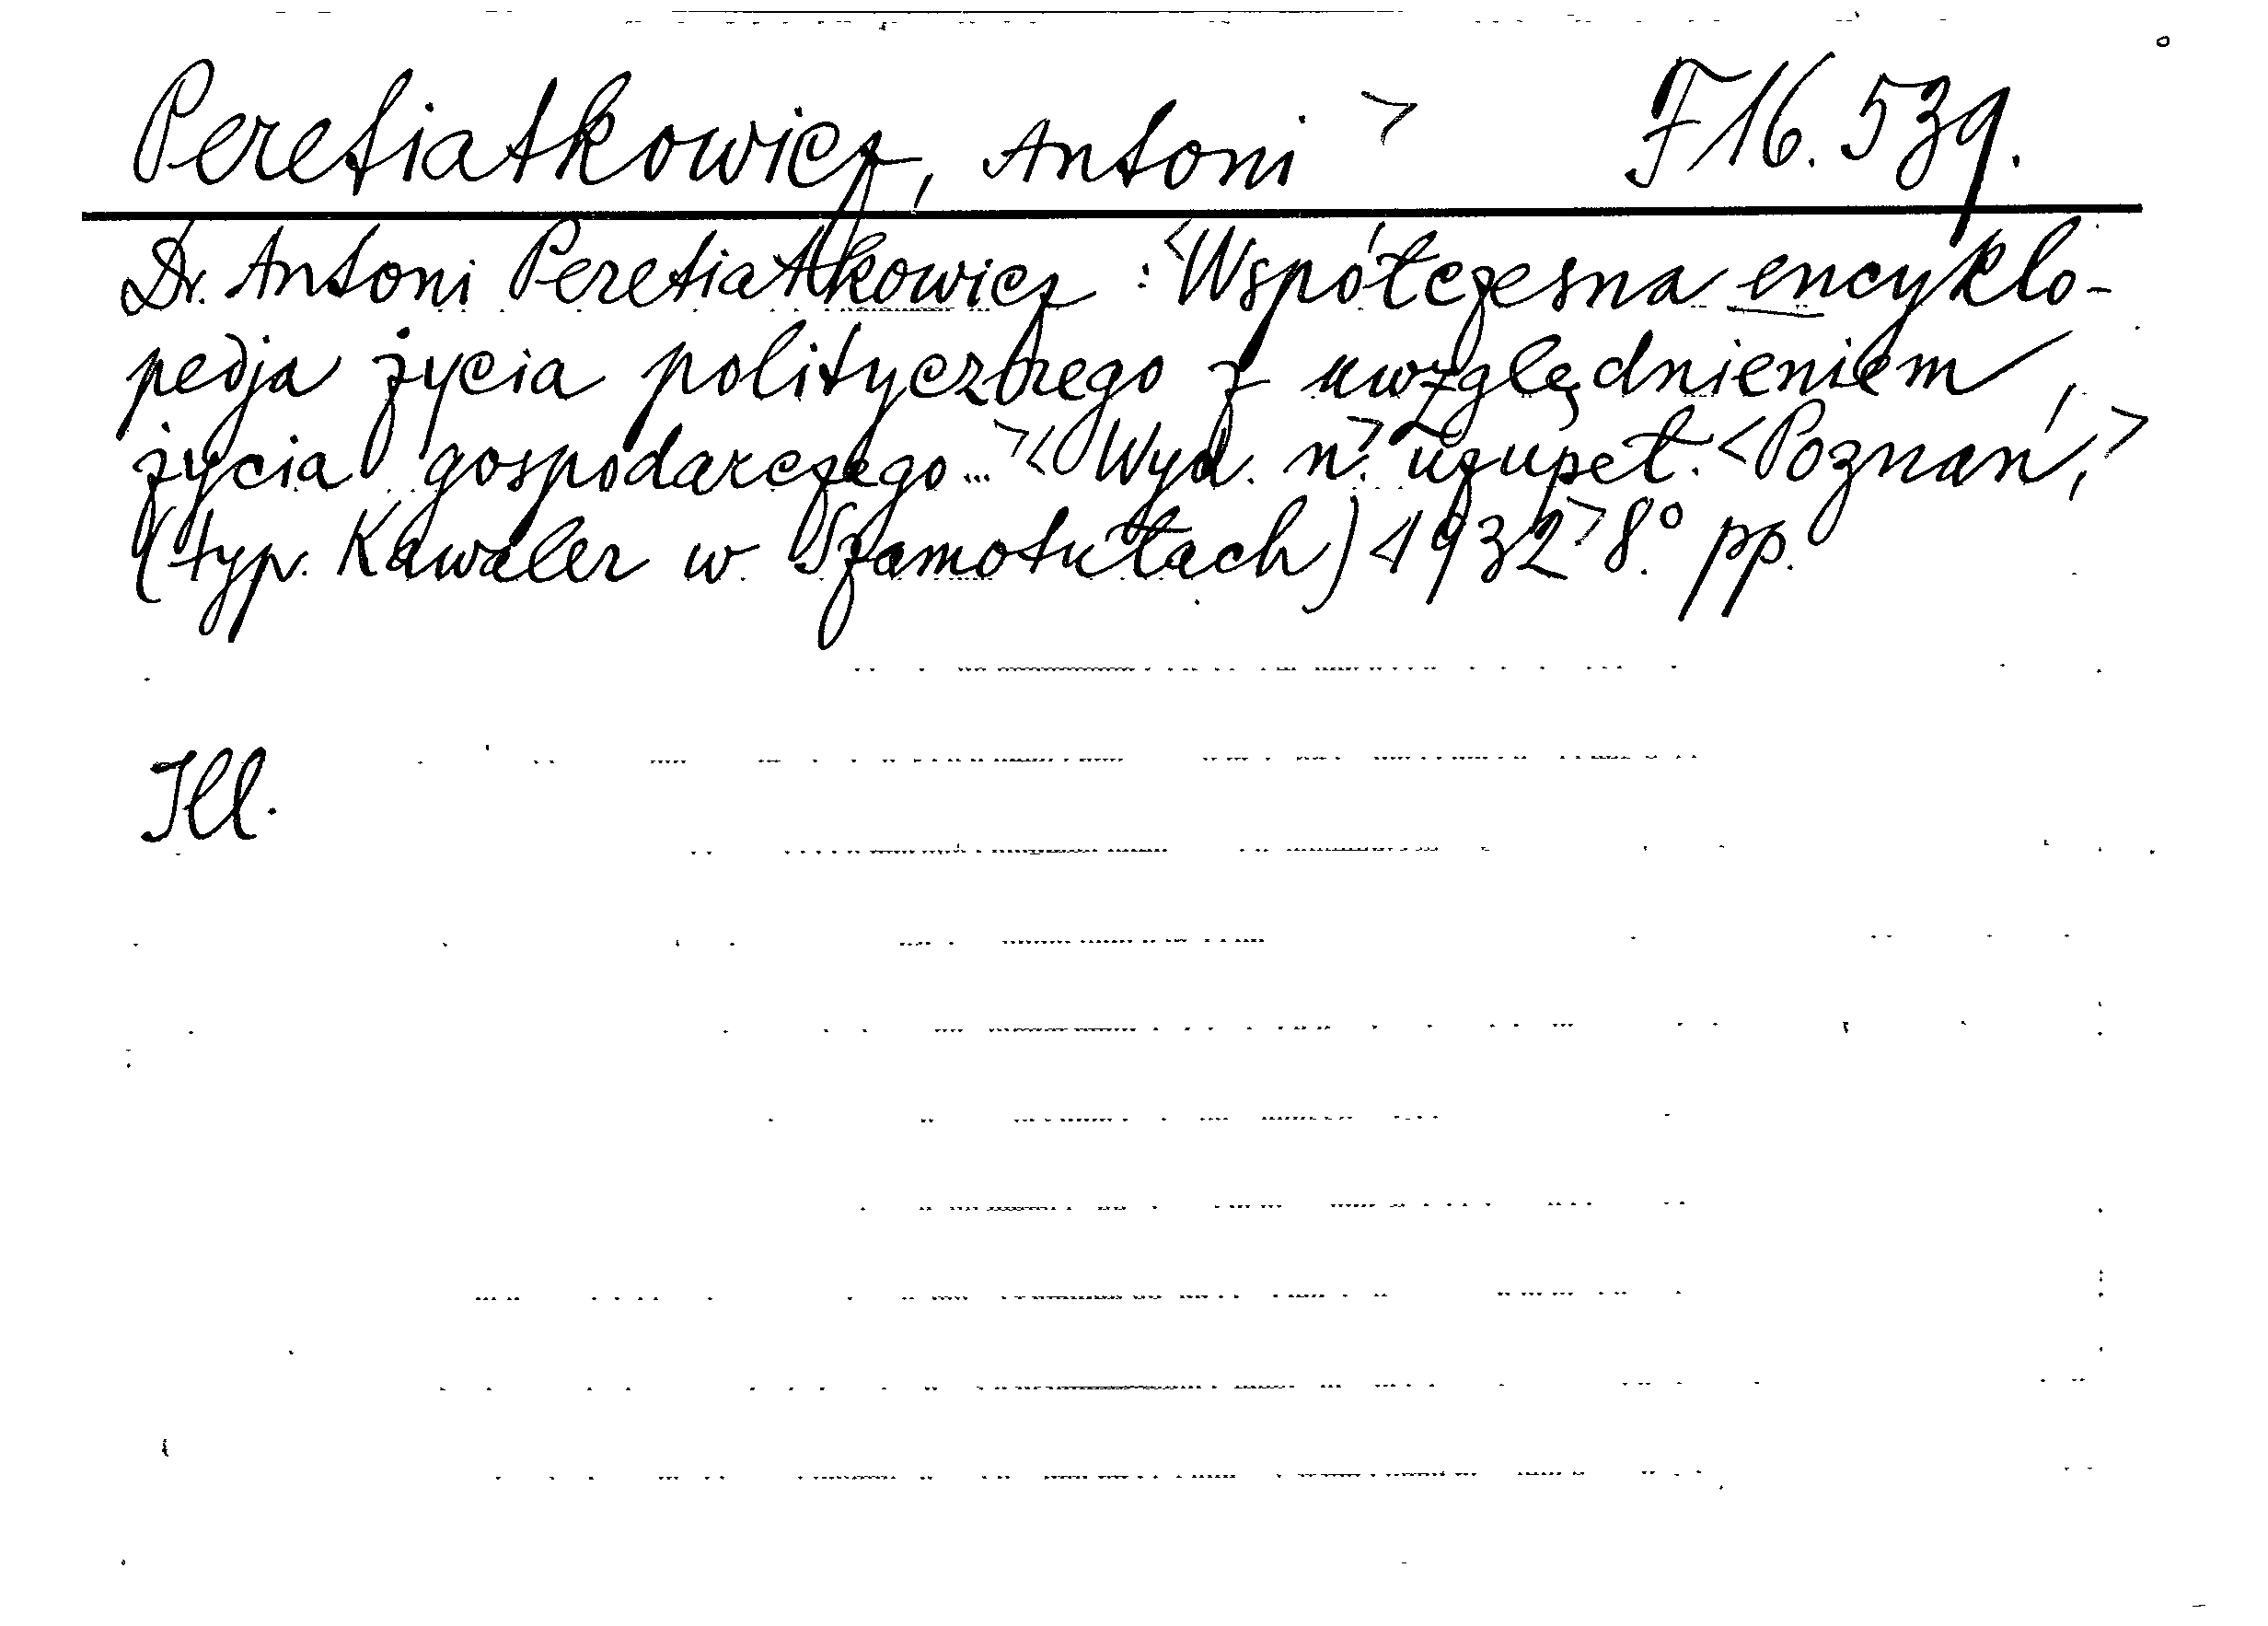 Peretiatkowicz, Antoni > F 16.539.
Dr. Antoni Peretiatkowicz : <Współczesna encyklo-
pedja życia politycznego z uwzględnieniem
życia gospodarczego...> < Wyd. n.> uzupeł. <Poznań,>
(typ. Kawaler w Szamotułach) <1932> 8.° pp.
Ill.